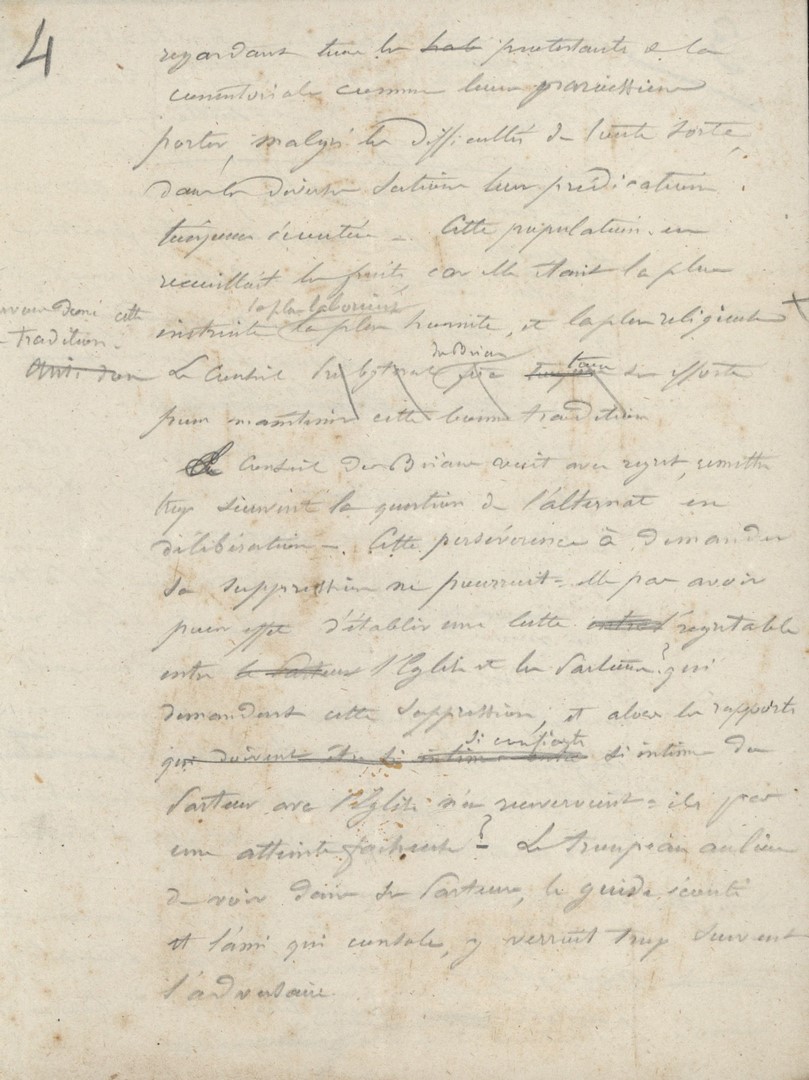 4
regardant tous les protestants de la
consistoriale comme leurs paroissiens
porter, malgré les difficultés de toute sorte,
dans les diverses sections leur prédication
toujours écoutée _ Cette population en
recueillait les fruits, car elle était la plus
la plus laborieuse
instruite la plus honnête, et la plus religieuse X
cette
tradition.
Le Conseil presbyteral
pour maintenir cette bonne tradition
Le Conseil de voit avec regret, remettre
trop souvent la question de l'alternat en
délibération _. Cette persévérence à demander
sa suppression ne pourrait-elle pas avoir
pour effet d'établir une lutte regrétable
entre l'Eglise et les Pasteurs? qui
demandent cette suppression, et alors les rapports
qui doivent être si intimes
si confiants
si intimes du
Pasteur avec l'Eglise n'en recevraient-ils pas
une atteinte facheuse? _ Le troupeau au lieu
de voir dans ses Pasteurs, le guide écouté
et l'ami qui console, y verrait trop souvent
l'adversaire.